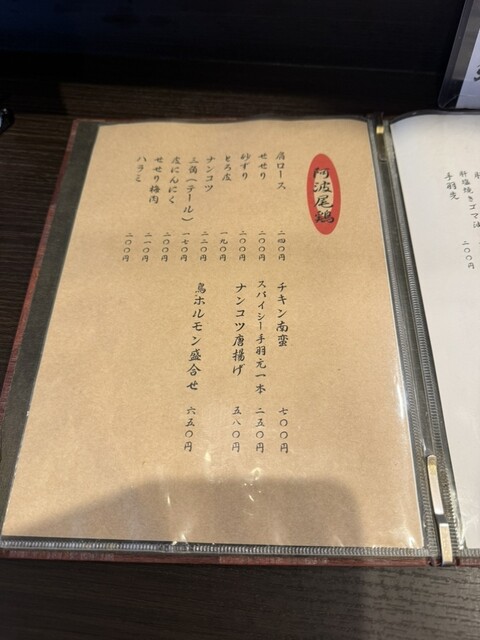 肝塩焼きゴマ油
手羽先 二〇〇円
阿波尾鶏
肩ロース 二四〇円
せせり 二〇〇円
砂ずり 二〇〇円
とろ皮 一九〇円
ナンコツ 二二〇円
三角(テール) 一七〇円
皮にんにく 二〇〇円
せせり梅肉 二一〇円
ハラミ 二〇〇円
チキン南蛮 七〇〇円
スパイシー手羽元一本 二五〇円
ナンコツ唐揚げ 五八〇円
鳥ホルモン盛合せ 六五〇円